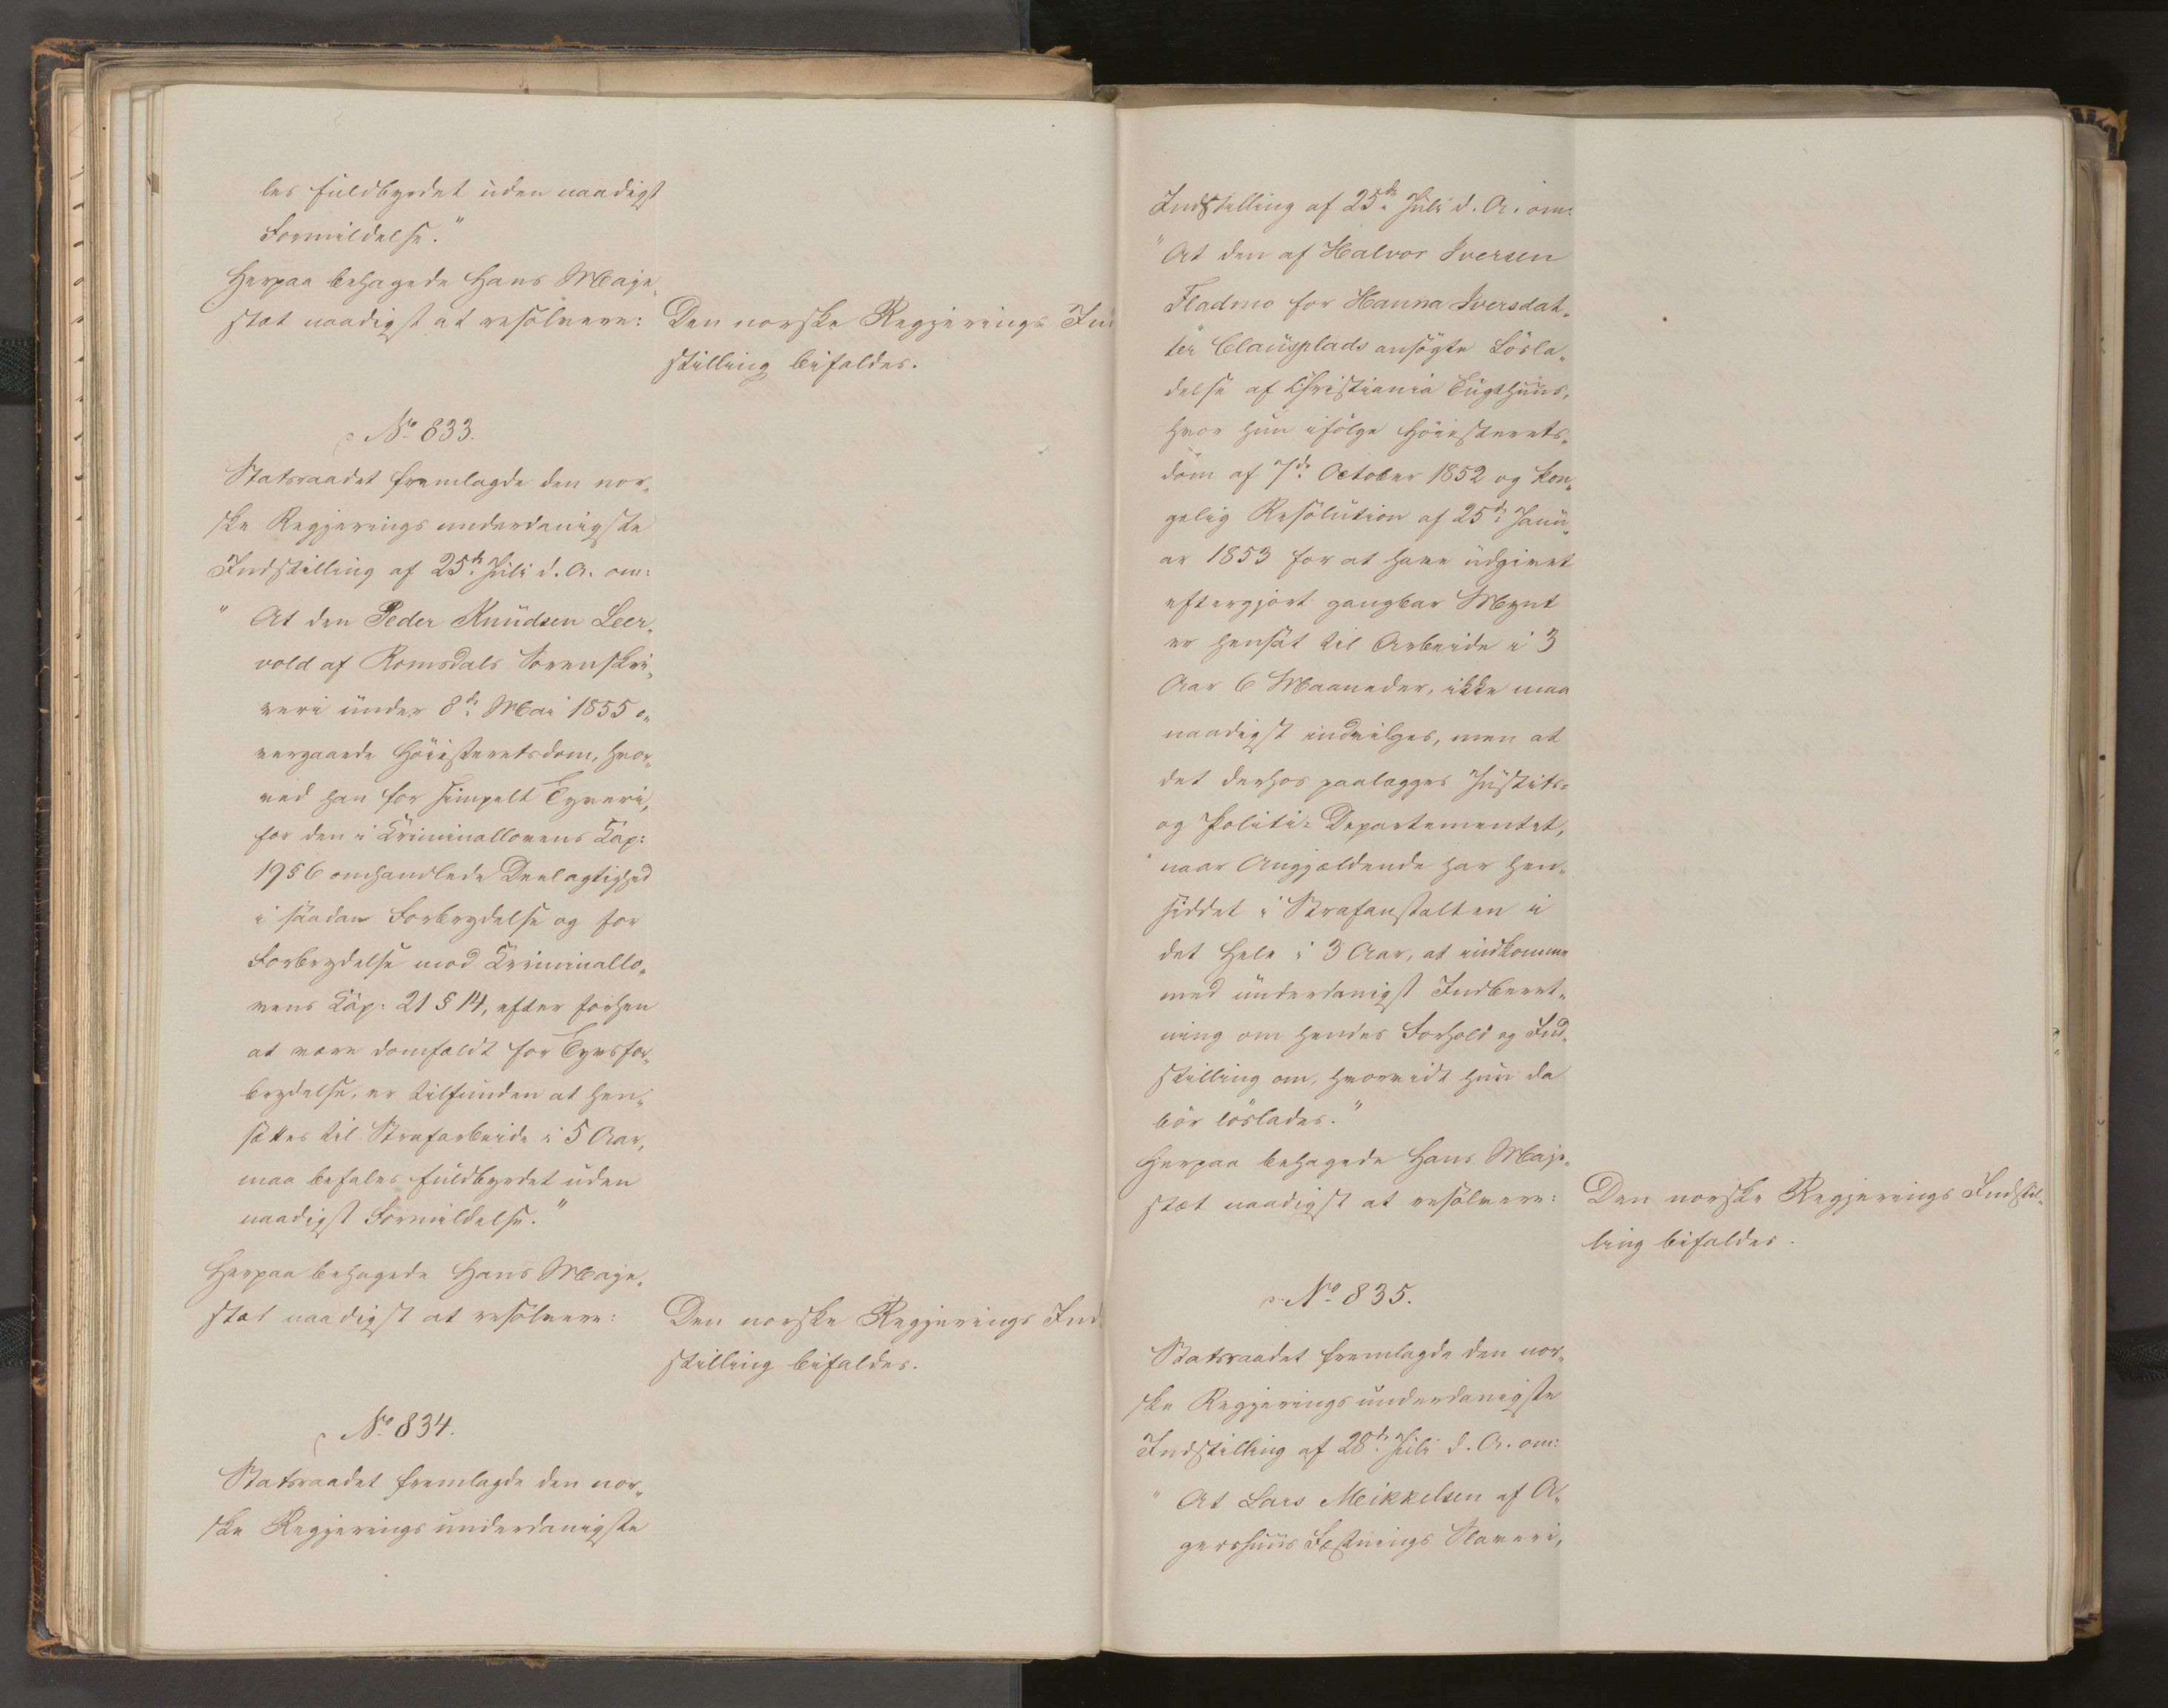 les fuldbyrdet uden naadigst
Formildelse."
Herpaa behagede Hans Maje„
stæt naadigst at resolvere:
Den norske Regjerings In
stilling bifaldes.
No 833.
Statsraadet fremlagde den nor„
ske Regjerings underdanigste
Indstilling af 25de Juli d. A. om:
" At den Peder Knudsen Leer„
vold af Romsdals Sorenskri„
veri under 8de Mai 1855 o„
vergaaede Høiesteretsdom, hvor„
ved han for simpelt Tyveri,
for den i Kriminallovens Kap:
19 § 6 omhandlede Deelagtighed
i saadan Forbrydelse og for
Forbrydelse mod Kriminallo„
vens Kap: 21 § 14, efter forhen
at være domfældt for Tyvsfor„
brydelse, er tilfunden at hen„
sættes til Strafarbeide i 5 Aar,
maa befales fuldbyrdet uden
naadigst Formildelse."
Herpaa behagede Hans Maje„
stæt naadigst at resolvere:
Den norske Regjerings Ind
stilling bifaldes.
No 834.
Statsraadet fremlagde den nor„
ske Regjerings underdanigste
Indstilling af 25de Juli d. A. om:
" At den af Halvor Iversen
Fladmo for Hanna Iversdat„
ter Clausplads ansøgte Løsla„
delse af Christiania Tugthuus,
hvor hun ifølge Høiesterets„
dom af 7de October 1852 og kon„
gelig Resolution af 25de Janu„
ar 1853 for at have udgivet
eftergjort gangbar Mynt
er hensat til Arbeide i 3
Aar 6 Maaneder, ikke maa
naadigst indvilges, men at
det derhos paalægges Justits=
og Politi= Departementet,
naar Angjældende har hen„
siddet i Strafanstalten i
det Hele i 3 Aar, at indkomme
med underdanigst Indberet„
ning om hendes Forhold og Ind„
stilling om, hvorvidt hun da
bør løslades."
Herpaa behagede Hans Maje„
stæt naadigst at resolvere:
Den norske Regjerings Indstil„
ling bifaldes.
No 835.
Statsraadet fremlagde den nor„
ske Regjerings underdanigste
Indstilling af 28de Juli d. A. om:
" At Lars Meikkelsen af A„
gershuus Fæstnings Slaveri,